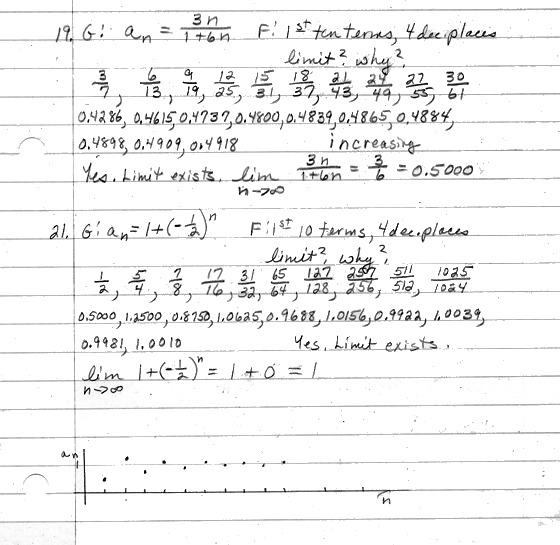 19. G: a_n = 3n/(1+6n) F: 1st ten terms, 4 dec. places
limit? why?
3/7, 6/13, 9/19, 12/25, 15/31, 18/37, 21/43, 24/49, 27/55, 30/61
0.4286, 0.4615, 0.4737, 0.4800, 0.4839, 0.4865, 0.4884,
0.4898, 0.4909, 0.4918 increasing
Yes. Limit exists. lim n→∞ 3n/(1+6n) = 3/6 = 0.5000
21. G: a_n = 1+(-1/2)^n F: 1st 10 terms, 4 dec. places
limit?, why?
1/2, 5/4, 7/8, 17/16, 31/32, 65/64, 127/128, 257/256, 511/512, 1025/1024
0.5000, 1.2500, 0.8750, 1.0625, 0.9688, 1.0156, 0.9922, 1.0039,
0.9981, 1.0010 Yes. Limit exists.
lim n→∞ 1+(-1/2)^n = 1 + 0 = 1
a_n
1
n